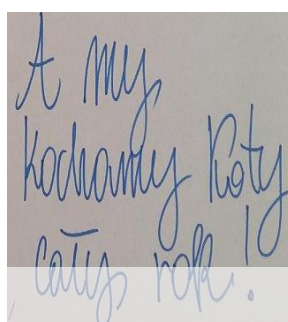 A my
kochamy koty
cały rok!